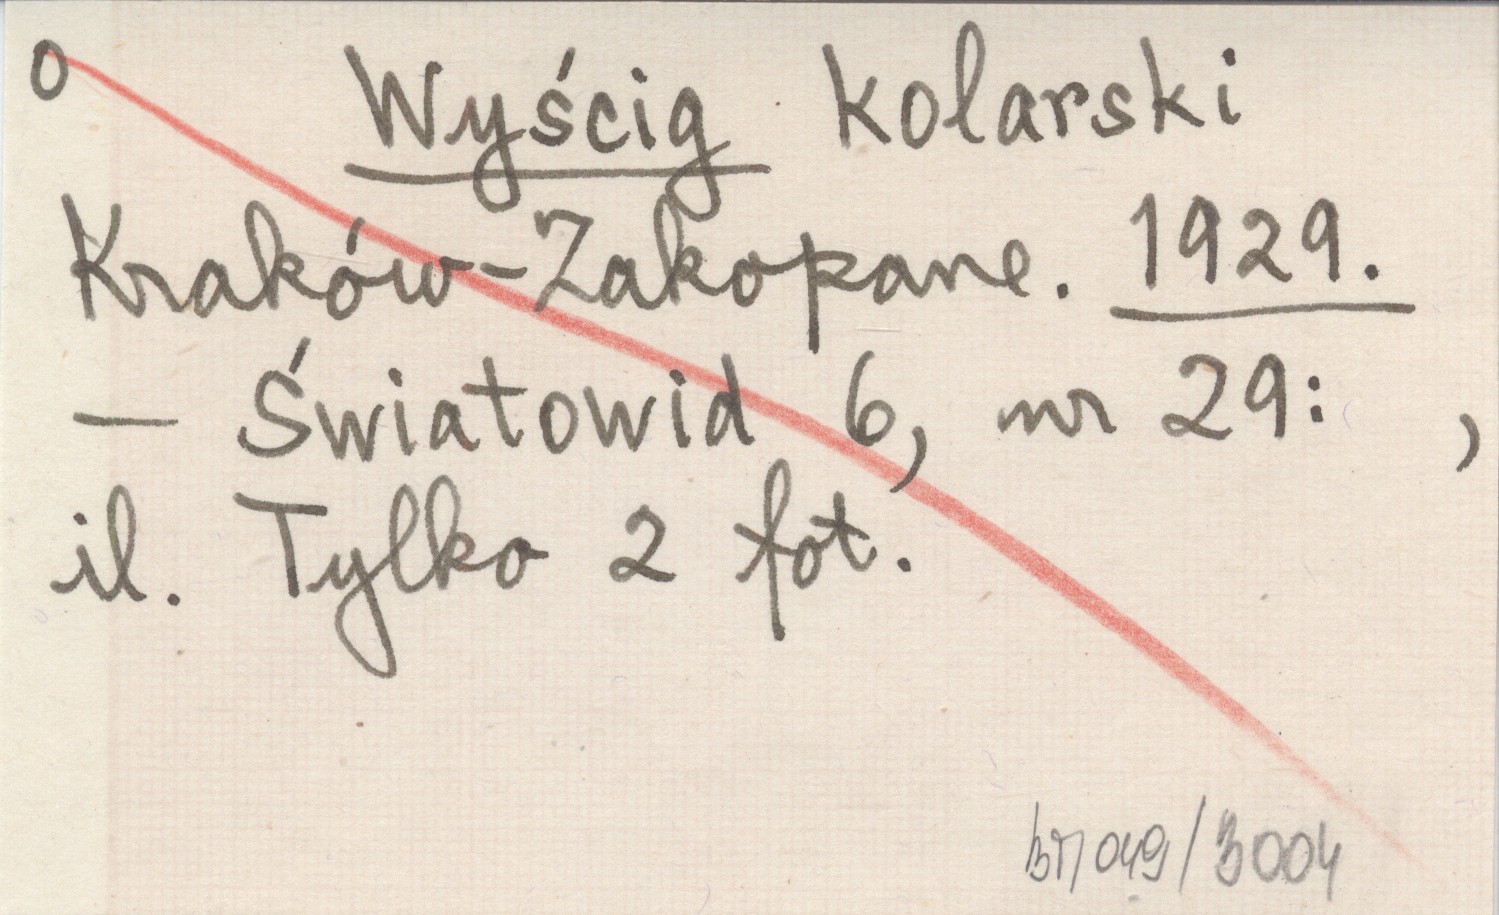 0 Wyścig kolarski
Kraków-Zakopane. 1929.
— Światowid 6, nr 29: ,
il. Tylko 2 fot.
049/3004